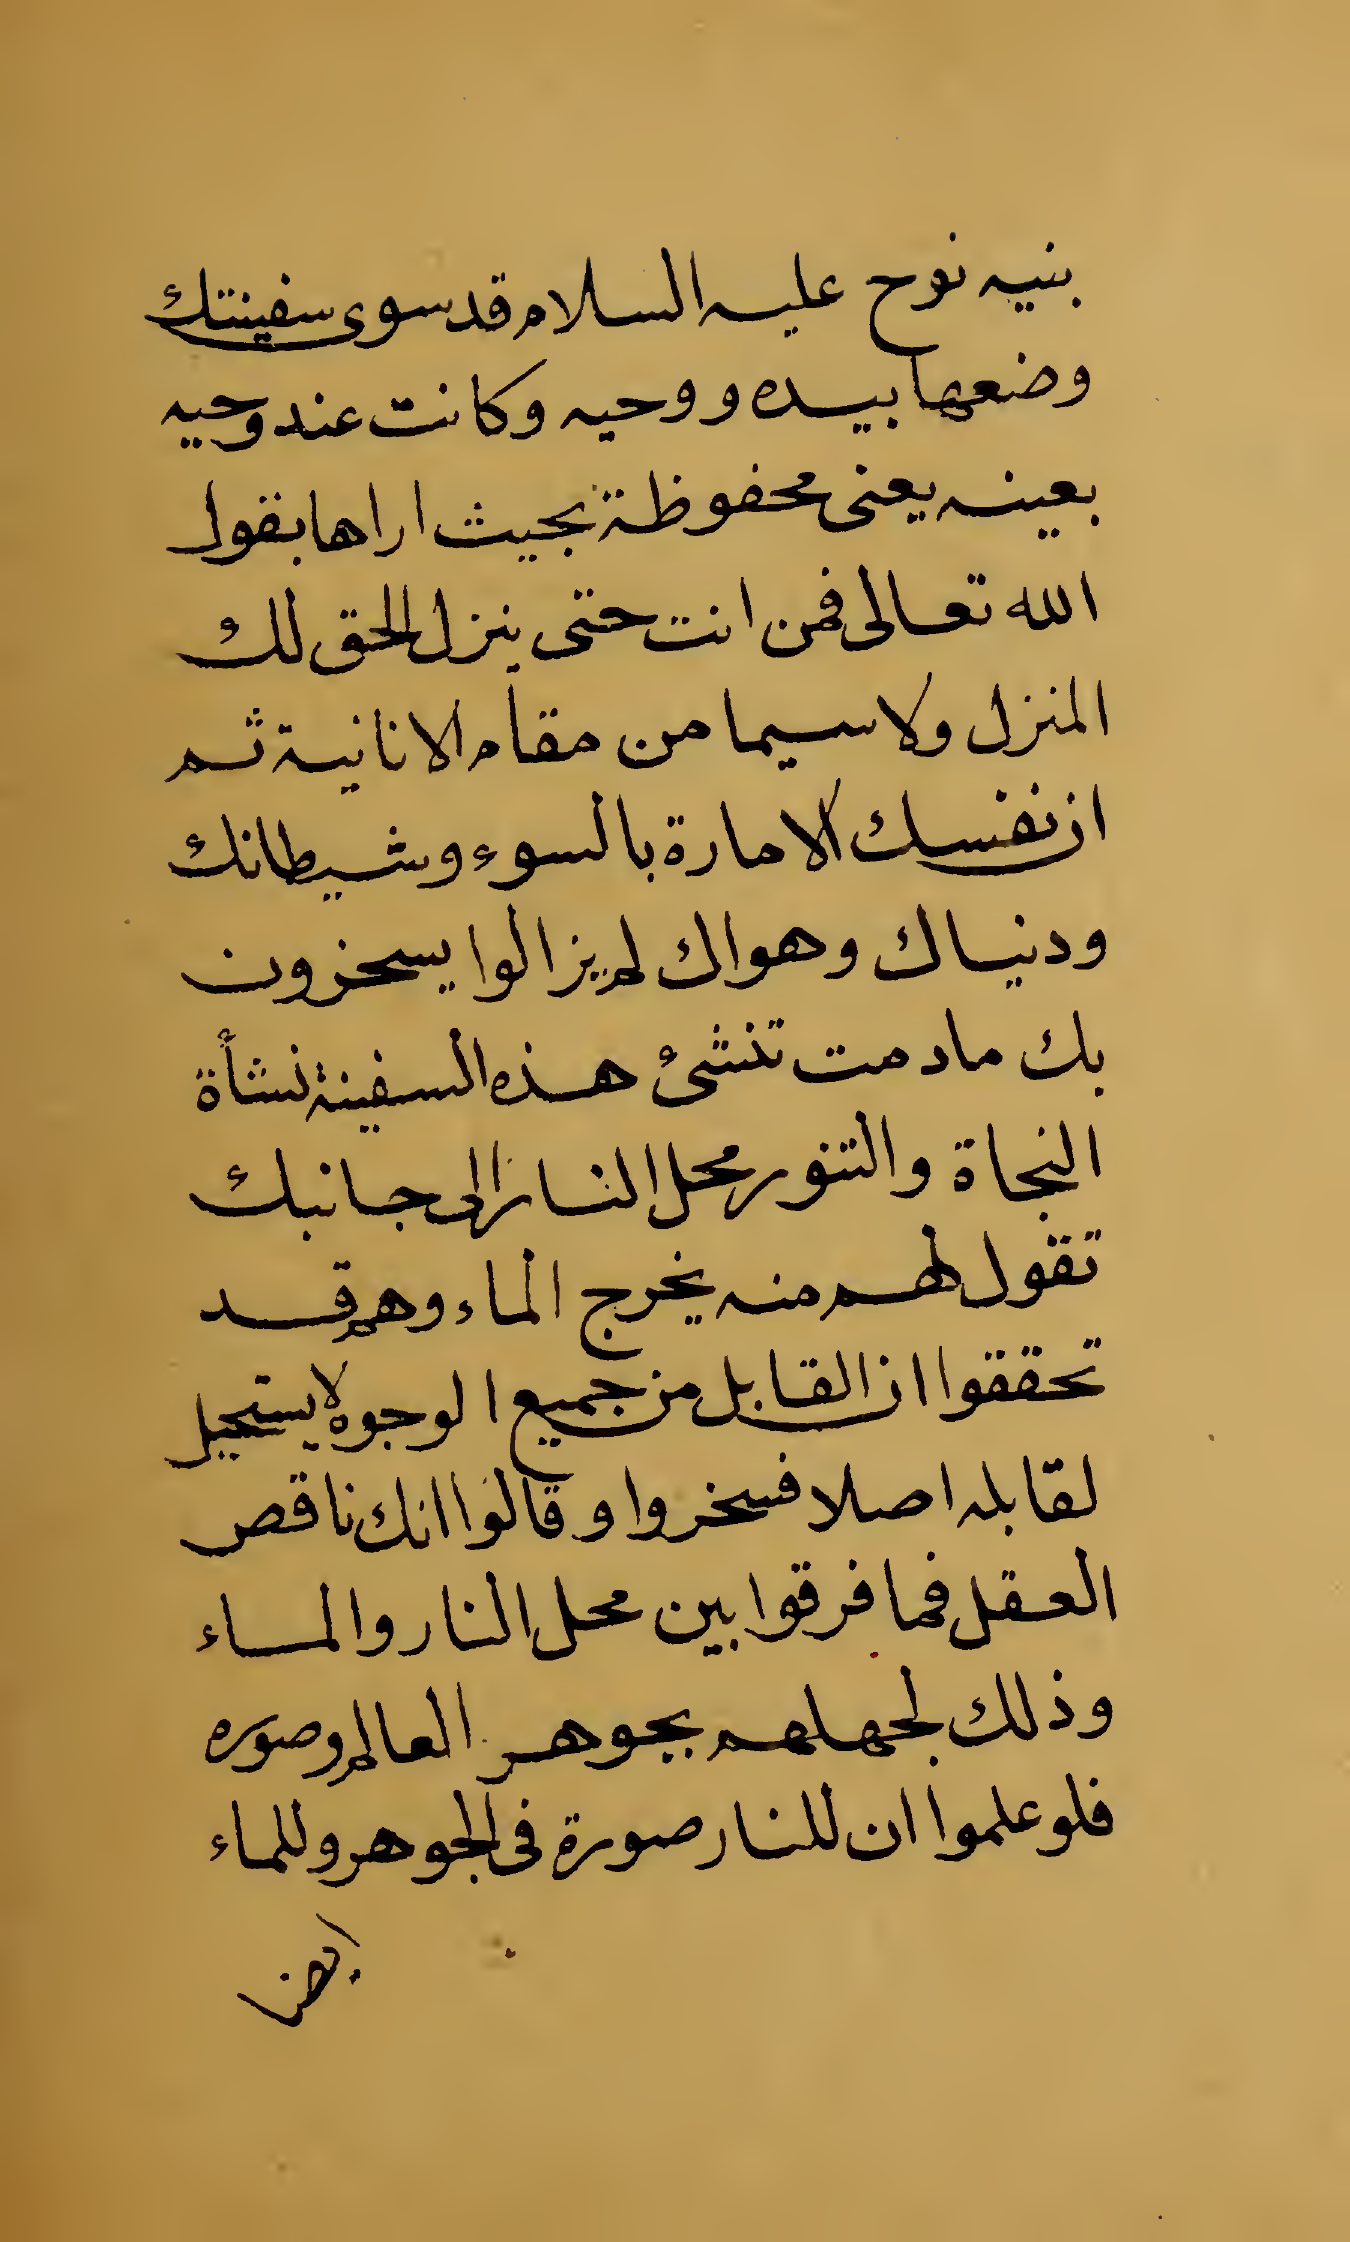 بنيه نوح عليه السلام قد سوى سفينتك
وضعها بيده ووحيه وكانت عند وحيه
بعينه يعنى محفوظة بحيث اراها بقول
الله تعالى فمن انت حتى ينزل الحق لك
المنزل ولا سيما من مقام الانانية ثم
ان نفسك الامارة بالسوء وشيطانك
ودنياك وهواك لم يزالوا يسخرون
بك مادمت تنشئ هذه السفينة نشأة
النجاة والتنور محل النار الى جانبك
تقول لهم منه يخرج الماء وهم قد
تحققوا ان القابل من جميع الوجوه لا يستحيل
لقابله اصلا فسخروا وقالوا انك ناقص
العقل فما فرقوا بين محل النار والماء
وذلك لجهلهم بجوهر العالم وصوره
فلو علموا ان للنار صورة فى الجوهر وللماء